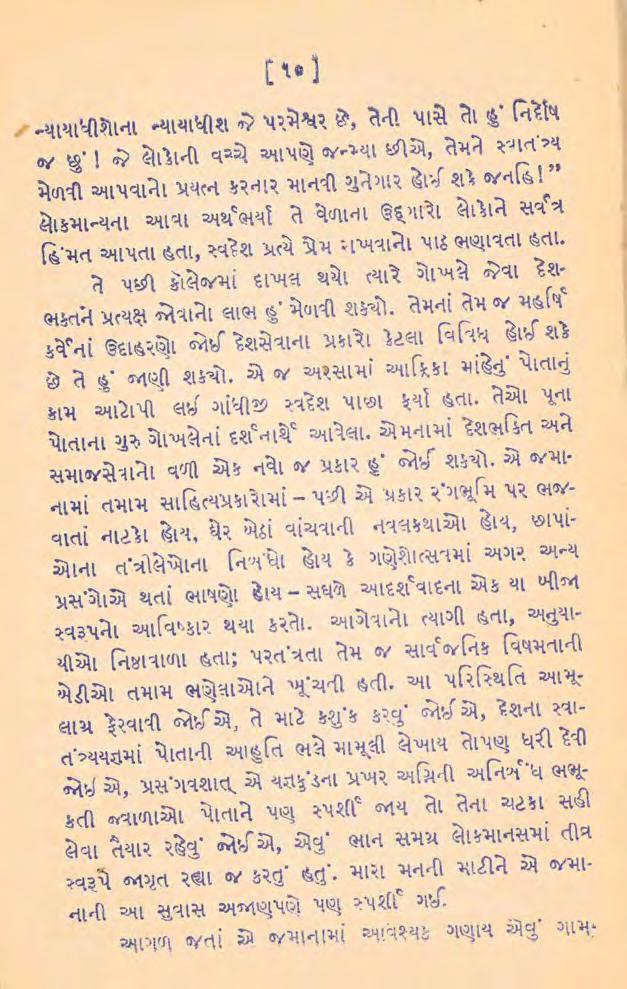 [ ૧૦ ]
ન્યાયાધીશોના ન્યાયાધીશ જે પરમેશ્વર છે, તેની પાસે તો હું નિર્દોષ
જ છું ! જે લોકોની વચ્ચે આપણે જન્મ્યા છીએ, તેમને સ્વાતંત્ર્ય
મેળવી આપવાનો પ્રયત્ન કરનાર માનવી ગુનેગાર હોઈ શકે જનહિ!”
લોકમાન્યના આવા અર્થભર્યા તે વેળાના ઉદ્દગારો લોકોને સર્વત્ર
હિંમત આપતા હતા, સ્વદેશ પ્રત્યે પ્રેમ રાખવાનો પાઠ ભણાવતા હતા.
તે પછી કૉલેજમાં દાખલ થયો ત્યારે ગોખલે જેવા દેશ-
ભક્તને પ્રત્યક્ષ જોવાનો લાભ હું મેળવી શક્યો. તેમનાં તેમ જ મહર્ષિ
કર્વેનાં ઉદાહરણો જોઈ દેશસેવાના પ્રકારો કેટલા વિવિધ હોઈ શકે
છે તે હું જાણી શક્યો. એ જ અરસામાં આફ્રિકા માંહેનું પોતાનું
કામ આટોપી લઈ ગાંધીજી સ્વદેશ પાછા ફર્યા હતા. તેઓ પૂના
પોતાના ગુરુ ગોખલેનાં દર્શનાર્થે આવેલા. એમનામાં દેશભક્તિ અને
સમાજસેવાનો વળી એક નવો જ પ્રકાર હું જોઈ શક્યો. એ જમા-
નામાં તમામ સાહિત્યપ્રકારોમાં – પછી એ પ્રકાર રંગભૂમિ પર ભજ-
વાતાં નાટકો હોય, ઘેર બેઠાં વાંચવાની નવલકથાઓ હોય, છાપાં-
ઓના તંત્રીલેખોના નિબંધો હોય કે ગણેશોત્સવમાં અગર અન્ય
પ્રસંગોએ થતાં ભાષણો હોય – સઘળે આદર્શવાદના એક યા બીજા
સ્વરૂપનો આવિષ્કાર થયા કરતો. આગેવાનો ત્યાગી હતા, અનુયા-
યીઓ નિષ્ઠાવાળા હતા; પરતંત્રતા તેમ જ સાર્વજનિક વિષમતાની
બેડીઓ તમામ ભણેલાઓને ખૂંચતી હતી. આ પરિસ્થિતિ આમૂ-
લાગ્ર ફેરવાવી જોઈએ, તે માટે કશુંક કરવું જોઈએ, દેશના સ્વા-
તંત્ર્યયજ્ઞમાં પોતાની આહુતિ ભલે મામૂલી લેખાય તોપણ ધરી દેવી
જોઈએ, પ્રસંગવશાત્ એ યજ્ઞકુંડના પ્રખર અગ્નિની અનિર્બંધ ભભૂ-
કતી જ્વાળાઓ પોતાને પણ સ્પર્શી જાય તો તેના ચટકા સહી
લેવા તૈયાર રહેવું જોઈએ, એવું ભાન સમગ્ર લોકમાનસમાં તીવ્ર
સ્વરૂપે જાગૃત રહ્યા જ કરતું હતું. મારા મનની માટીને એ જમા-
નાની આ સુવાસ અજાણપણે પણ સ્પર્શી ગઈ.
આગળ જતાં એ જમાનામાં આવશ્યક ગણાય એવું ગામ-